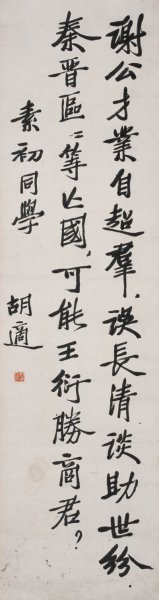 謝公才業自超羣，誤長清談助世紛
秦晉區〻等亡國，可能王衍勝商君？
素初同學
胡適